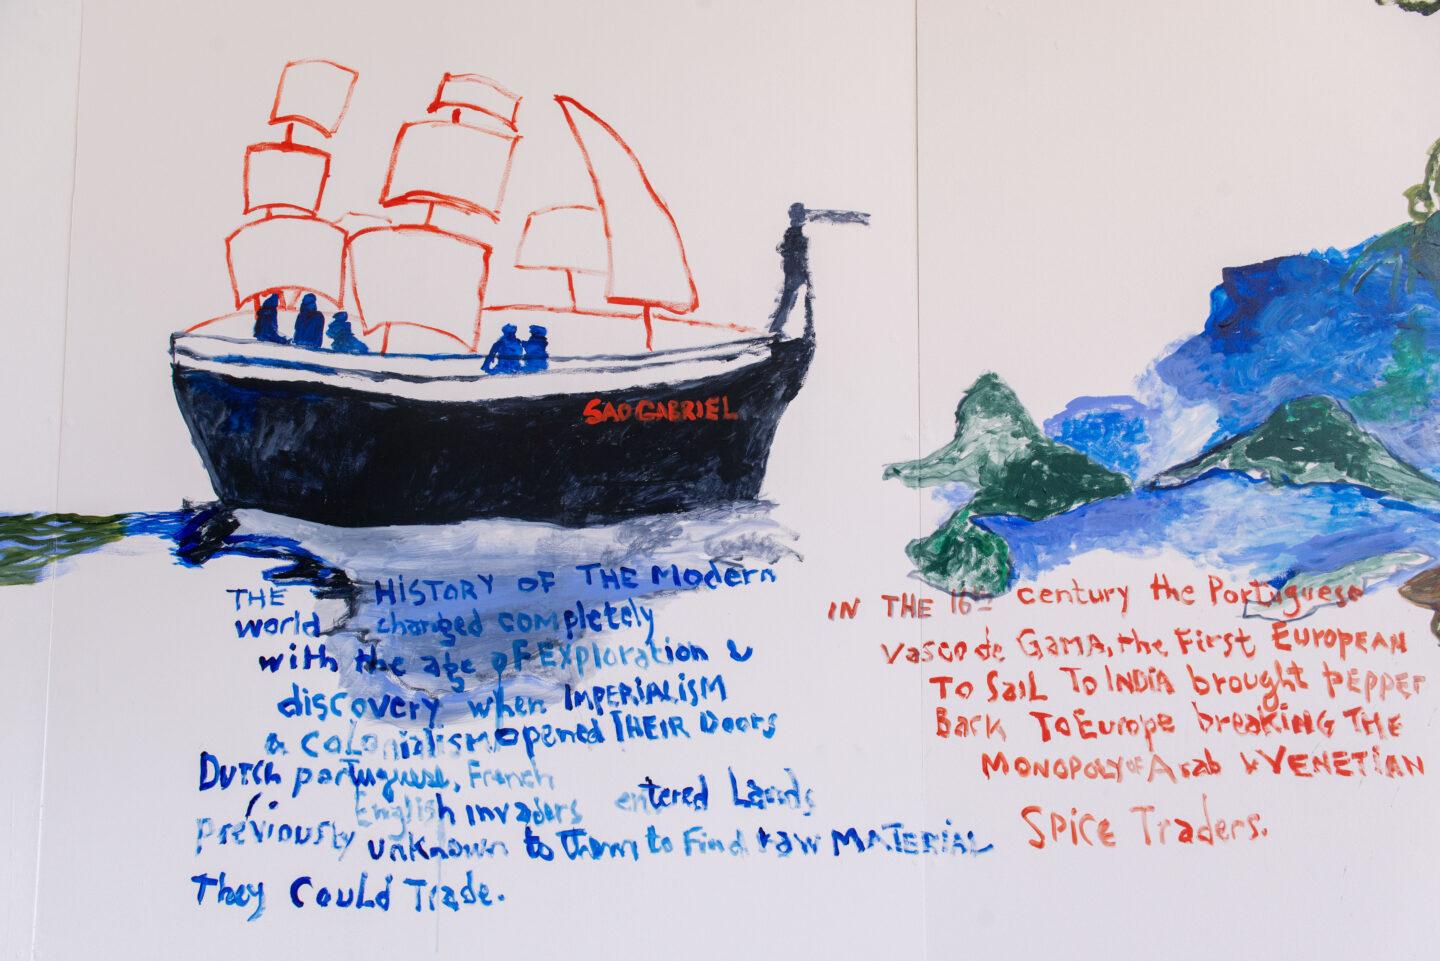 SAO GABRIEL
THE HISTORY OF THE Modern
world changed completely
with the age of Exploration &
discovery when IMPERIALISM
& colonialism opened THEIR Doors
Dutch portuguese, French
English invaders entered Lands
previously unknown to them to Find raw MATERIAL
They Could Trade.
IN THE 16TH century the Portuguese
Vasco de GAMA, the First EUROPEAN
To SaiL To INDIA brought PEPPER
Back To Europe breaking THE
MONOPOLY OF Arab & VENETIAN
SPiCE Traders.